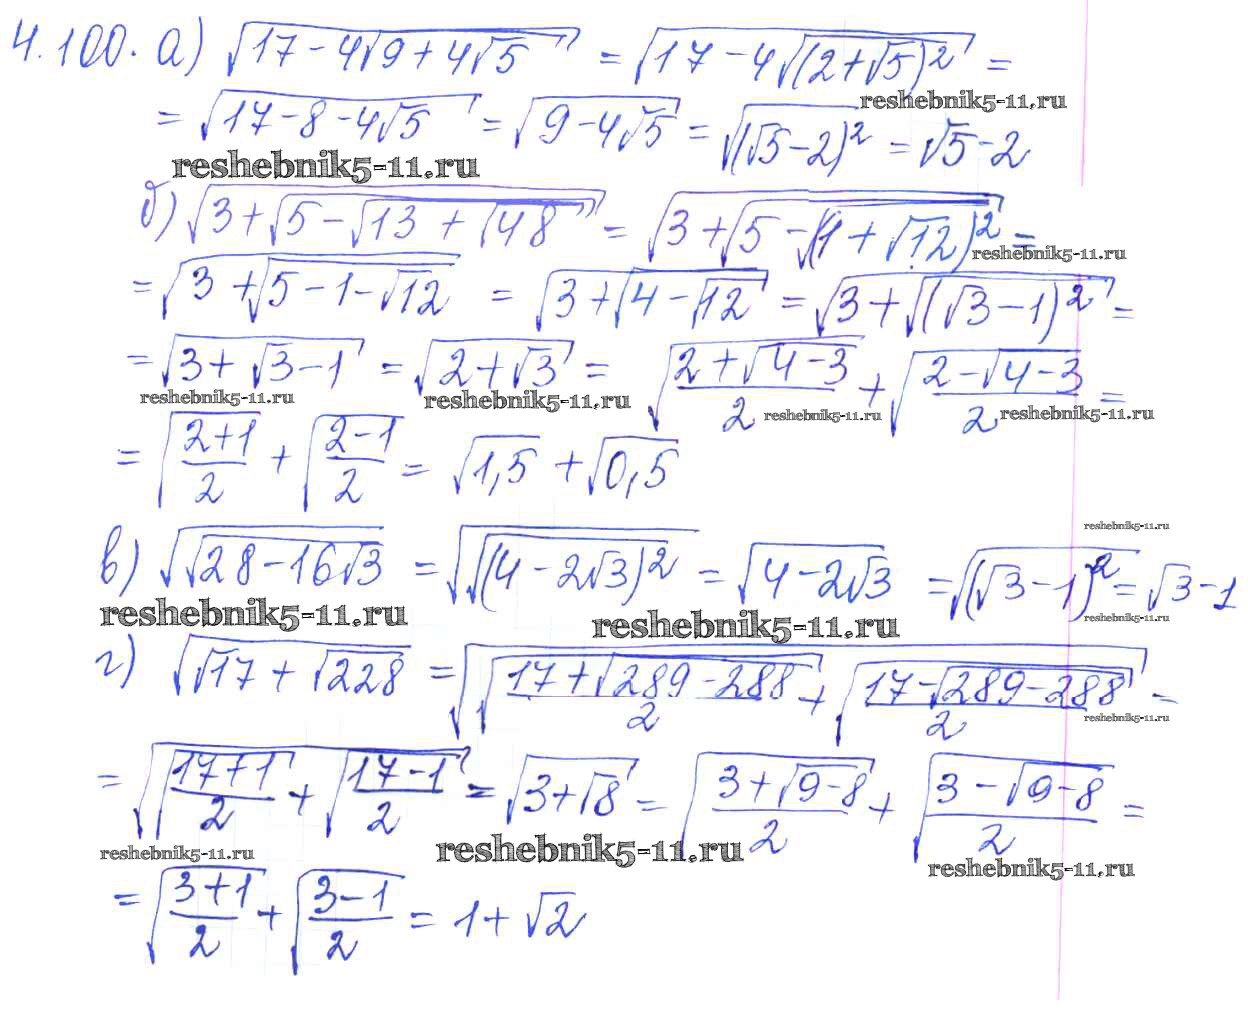 4.100. а) √(17-4√(9+4√5)) = √(17-4√((2+√5)²)) =
reshebnik5-11.ru
= √(17-8-4√5) = √(9-4√5) = √((√5-2)²) = √5-2
reshebnik5-11.ru
б) √(3+√(5-√(13+√48))) = √(3+√(5-√((1+√12)²))) =
reshebnik5-11.ru
= √(3+√(5-1-√12)) = √(3+√(4-√12)) = √(3+√((√3-1)²)) =
= √(3+√3-1) = √(2+√3) = √((2+√(4-3))/2) + √((2-√(4-3))/2) =
reshebnik5-11.ru reshebnik5-11.ru reshebnik5-11.ru reshebnik5-11.ru
= √((2+1)/2) + √((2-1)/2) = √1,5 + √0,5
reshebnik5-11.ru
в) √(√(28-16√3)) = √(√((4-2√3)²)) = √(4-2√3) = √((√3-1)²) = √3-1
reshebnik5-11.ru reshebnik5-11.ru reshebnik5-11.ru
г) √(√17+√228) = √(√((17+√(289-288))/2) + √((17-√(289-288))/2)) =
reshebnik5-11.ru
= √(√((17+1)/2) + √((17-1)/2)) = √(3+√8) = √((3+√(9-8))/2) + √((3-√(9-8))/2) =
reshebnik5-11.ru reshebnik5-11.ru reshebnik5-11.ru
= √((3+1)/2) + √((3-1)/2) = 1+√2